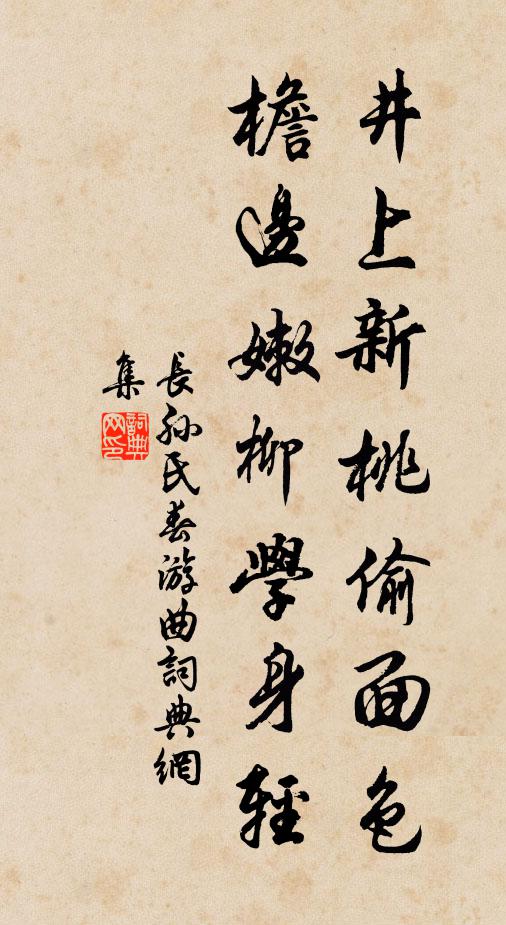 井上新桃偷面色
檐邊嫩柳學身輕
長孫氏春游曲詞典網
集
詞典
网印